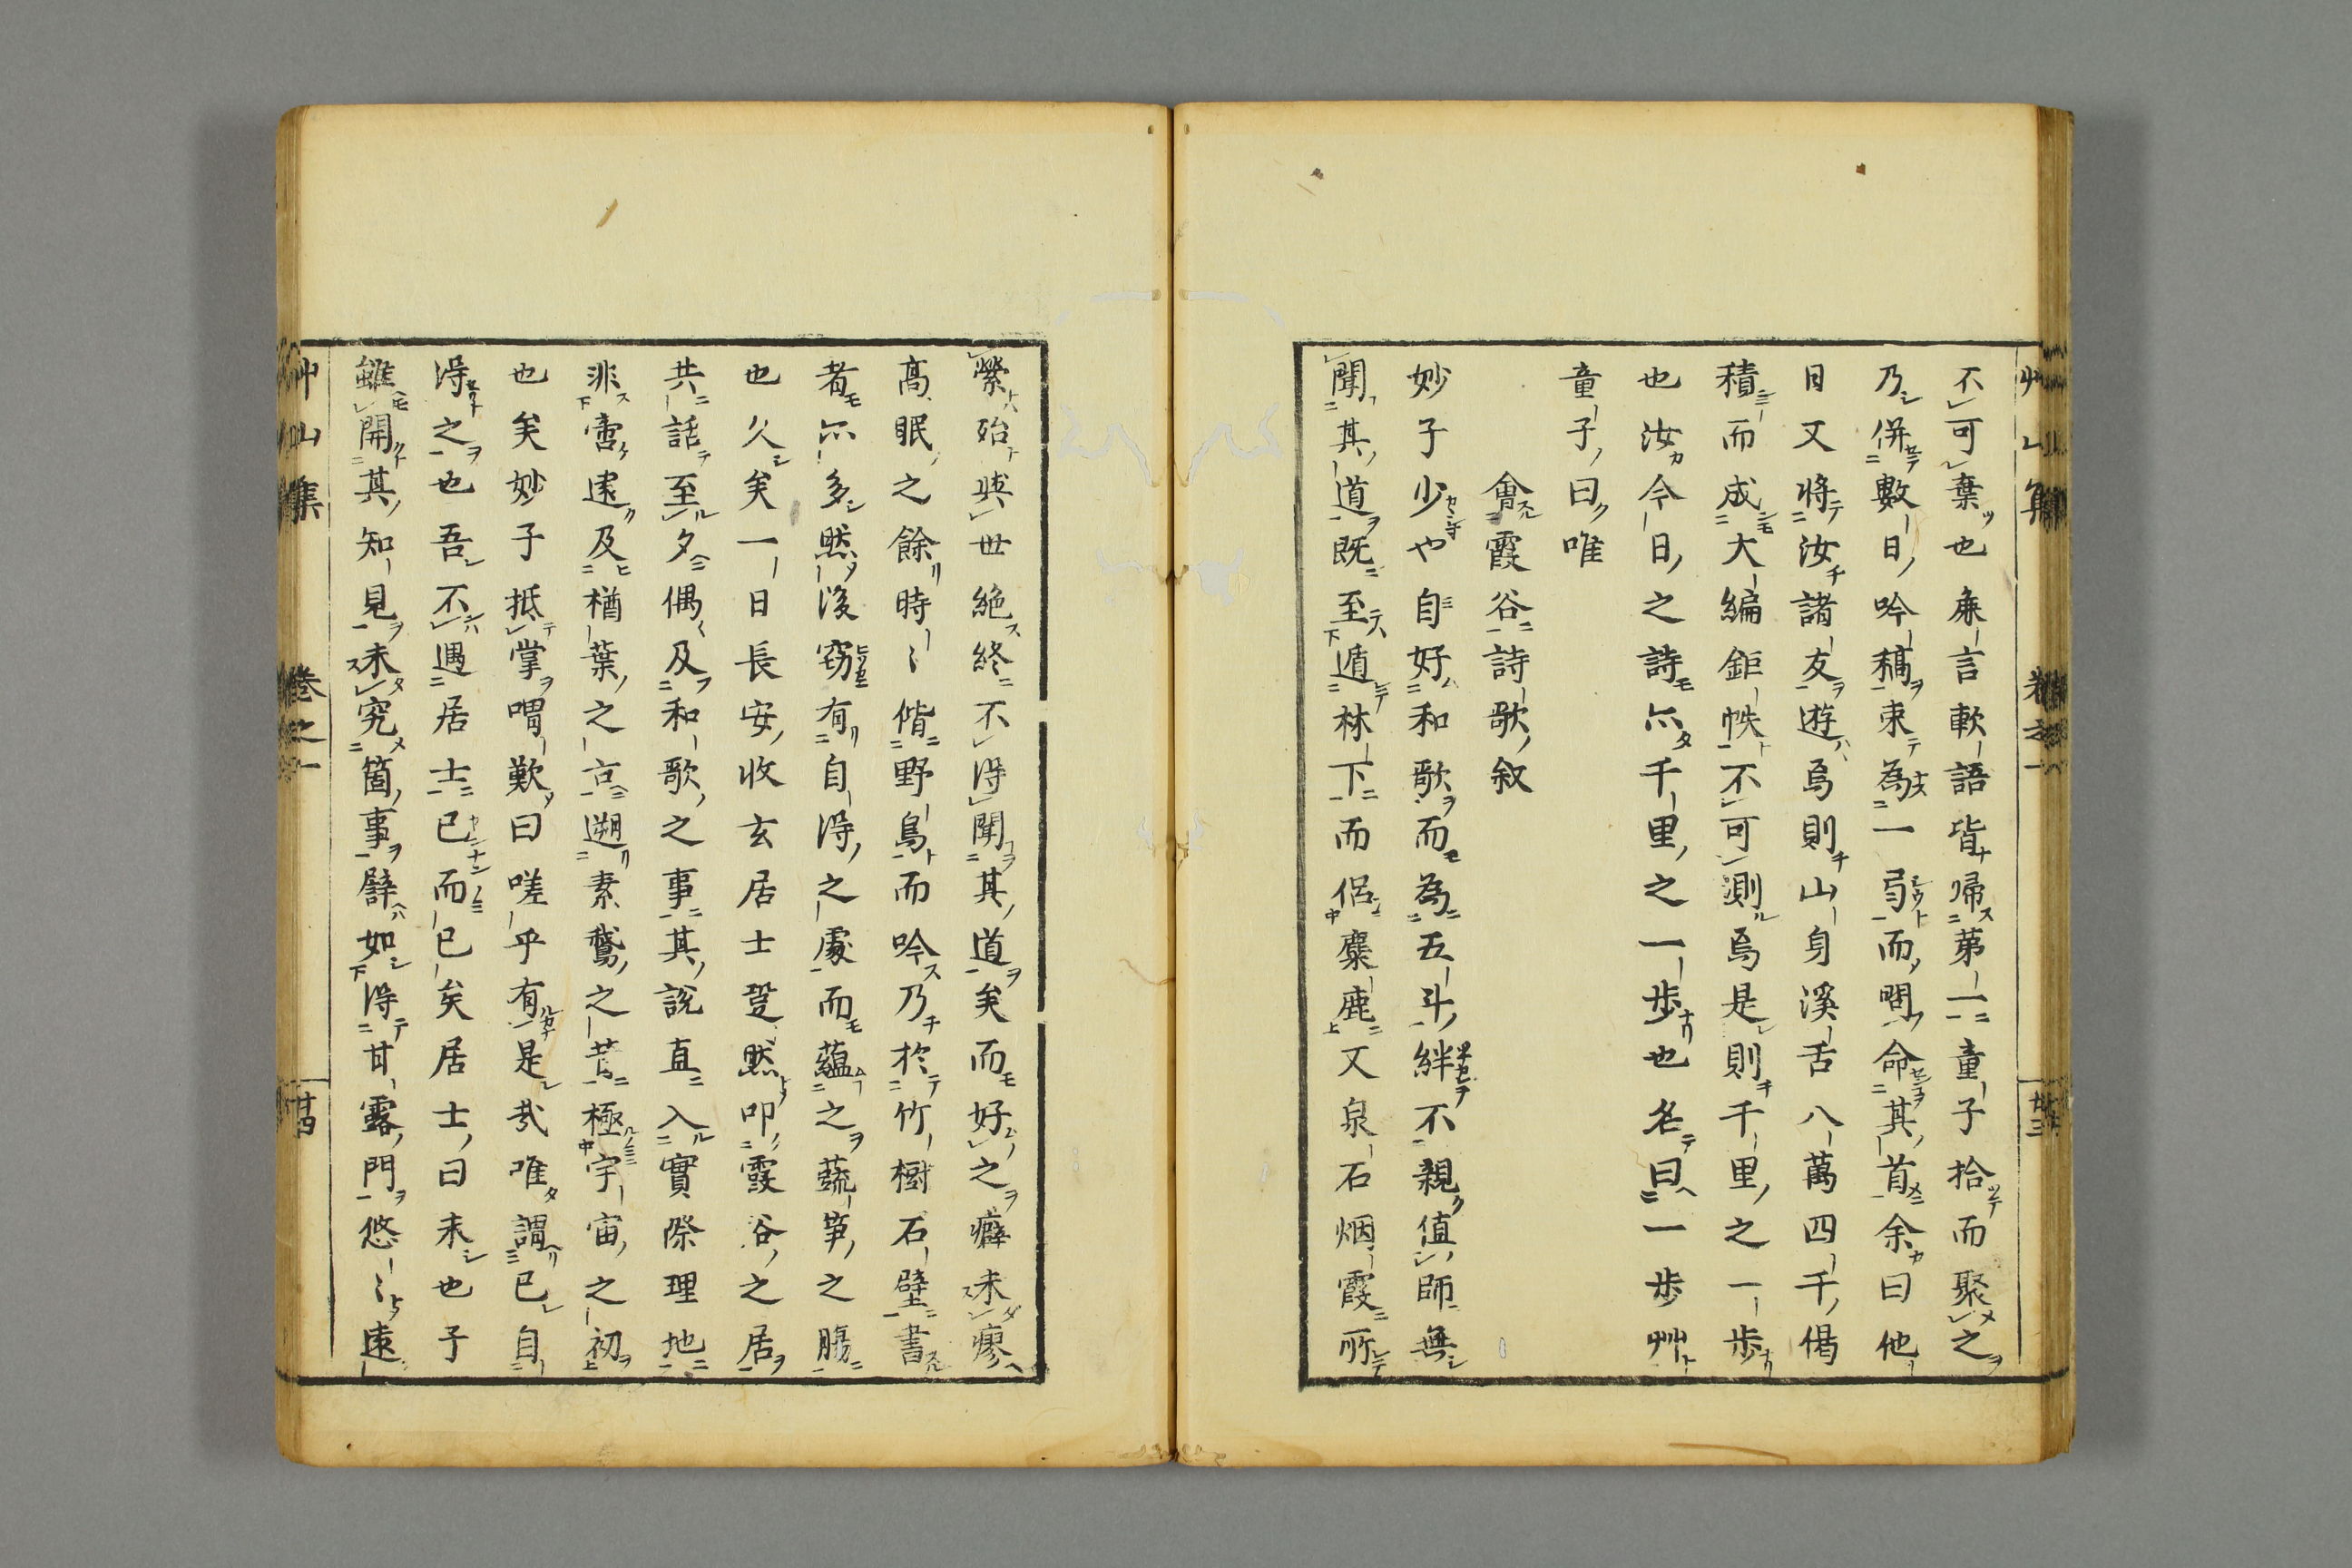 不可棄也麁言軟語皆帰第一童子拾而聚之
乃併數日吟稿束為一弓而問命其首余曰他
日又將汝諸友遊焉則山身溪舌八萬四千偈
積而成大編鉅帙不可測焉是則千里之一歩
也汝今日之詩亦千里之一歩也名曰一歩艸
童子曰唯
會霞谷詩歌叙
妙子少也自好和歌而為五斗絆不親值師無
聞其道既至遁林下而侶麋鹿又泉石烟霞所
縈殆與世絶終不得聞其道矣而好之癖未瘳
高眠之餘時〻偕野鳥而吟乃於竹樹石壁書
者亦多然後窃有自得之處而蘊之蔬笋之腸
也久矣一日長安收玄居士跫然叩霞谷之居
共話至夕偶及和歌之事其說直入實際理地
非啻遠及楢葉之古遡素鵞之昔極宇宙之初
也矣妙子抵掌喟歎曰嗟乎有是哉唯謂已自
得之也吾不遇居士已而已矣居士曰未也子
雖開其知見未究箇事譬如得甘露門悠〻遠
艸山集
卷之一
廿三
艸山集
卷之一
廿四